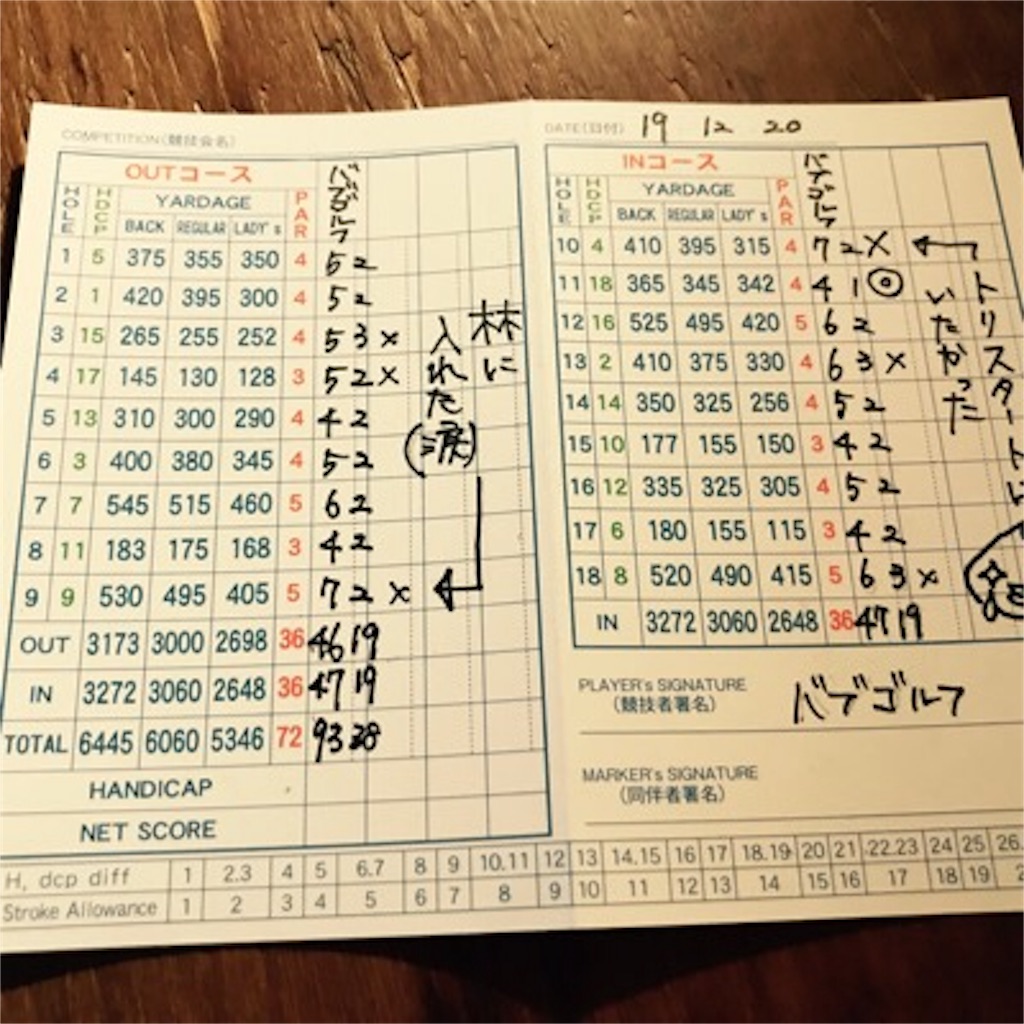 COMPETITION(競技会名)
OUTコース バブゴルフ
HOLE HDCP YARDAGE PAR
BACK REGULAR LADY's
1 5 375 355 350 4 5 2
2 1 420 395 300 4 5 2
3 15 265 255 252 4 5 3 ×
4 17 145 130 128 3 5 2 ×
5 13 310 300 290 4 4 2
6 3 400 380 345 4 5 2
7 7 545 515 460 5 6 2
8 11 183 175 168 3 4 2
9 9 530 495 405 5 7 2 ×
OUT 3173 3000 2698 36 46 19
IN 3272 3060 2648 36 47 19
TOTAL 6445 6060 5346 72 93 38
HANDICAP
NET SCORE
林に
入れた
(涙)
DATE(日付) 19 12 20
INコース バブゴルフ
HOLE HDCP YARDAGE PAR
BACK REGULAR LADY's
10 4 410 395 315 4 7 2 ×
11 18 365 345 342 4 4 1 ◎
12 16 525 495 420 5 6 2
13 2 410 375 330 4 6 3 ×
14 14 350 325 256 4 5 2
15 10 177 155 150 3 4 2
16 12 335 325 305 4 5 2
17 6 180 155 115 3 4 2
18 8 520 490 415 5 6 3 ×
IN 3272 3060 2648 36 47 19
トリスタート
いたかった
PLAYER's SIGNATURE
(競技者署名) バブゴルフ
MARKER's SIGNATURE
(同伴者署名)
H, dcp diff 1 2.3 4 5 6.7 8 9 10.11 12 13 14.15 16 17 18.19 20 21 22.23 24 25 26.
Stroke Allowance 1 2 3 4 5 6 7 8 9 10 11 12 13 14 15 16 17 18 19